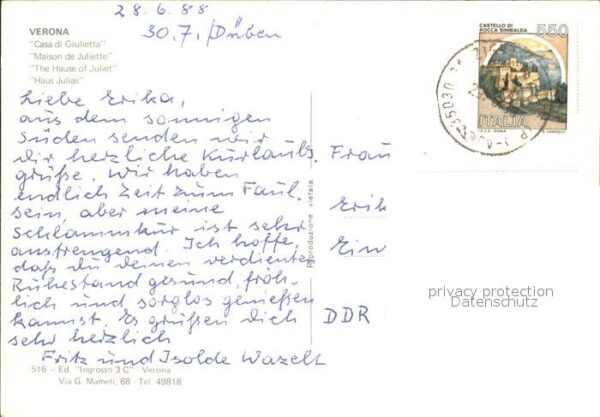 28.6.88
30.7./Düben
VERONA
"Casa di Giulietta"
"Maison de Juliette"
"The Hause of Juliet"
"Haus Julias"
CASTELLO DI
ROCCA SINIBALDA
550
ITALIA
I.P.Z.S. ROMA
35030
Liebe Erika,
aus dem sonnigen
Süden senden wir
dir herzliche Kurlaubs
grüße. Wir haben
endlich Zeit zum Faul-
sein, aber meine
Schlammkur ist sehr
anstrengend. Ich hoffe,
daß du deinen verdienten
Ruhestand gesund, fröh-
lich und sorglos genießen
kannst. Es grüßen dich
sehr herzlich
Fritz und Isolde Wazelt
Frau
Erik
Ein
DDR
Riproduzione vietata
privacy protection
Datenschutz
516 - Ed. "Ingrosso 3 C" - Verona
Via G. Mameli, 68 - Tel. 49818